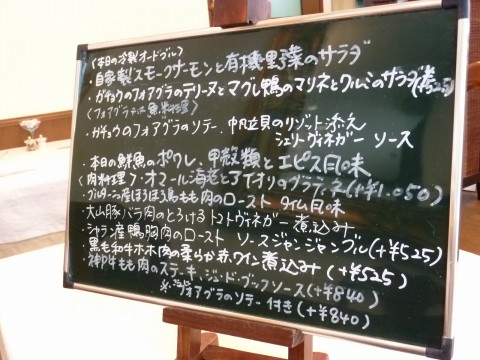 〈本日の冷製オードブル〉
・自家製スモークサーモンと有機野菜のサラダ
・ガチョウのフォアグラのテリーヌとマグレ鴨のマリネとクルミのサラダ(+¥525)
〈フォアグラ又は魚料理〉
・ガチョウのフォアグラのソテー、帆立貝のリゾット添え
シェリーヴィネガー ソース
・本日の鮮魚のポワレ、甲殻類とエピス風味
〈肉料理〉・オマール海老とアイオリのグラティネ(+¥1,050)
・ブルターニュ産ほろほろ鳥もも肉のロースト タイム風味
・大山豚バラ肉のとろけるトマトヴィネガー煮込み
・シャラン産鴨胸肉のロースト ソースジャンジャンブル(+¥525)
・黒毛和牛ホホ肉の柔らか赤ワイン煮込み(+¥525)
・神戸牛もも肉のステーキ、ジュ・ド・ブッフソース(+¥840)
※フォアグラのソテー付き(+¥840)